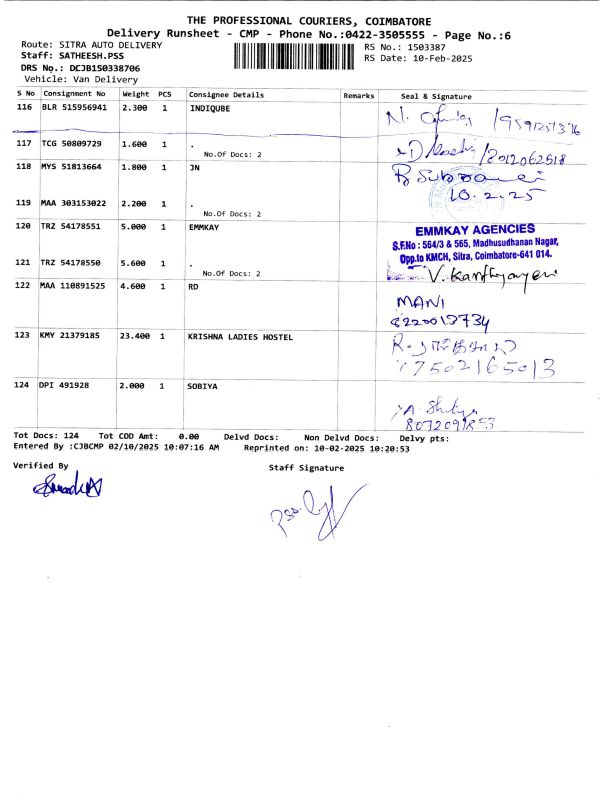 THE PROFESSIONAL COURIERS, COIMBATORE
Delivery Runsheet - CMP - Phone No.:0422-3505555 - Page No.:6
Route: SITRA AUTO DELIVERY
RS No.: 1503387
Staff: SATHEESH.PSS
RS Date: 10-Feb-2025
DRS No.: DCJB150338706
Vehicle: Van Delivery
S No Consignment No Weight PCS Consignee Details Remarks Seal & Signature
116 BLR 515956941 2.300 1 INDIQUBE
117 TCG 50809729 1.600 1 .
No.Of Docs: 2
8012062518
118 MYS 51813664 1.800 1 JN
10.2.25
119 MAA 303153022 2.200 1 .
No.Of Docs: 2
120 TRZ 54178551 5.000 1 EMMKAY
EMMKAY AGENCIES
S.F.No : 564/3 & 565, Madhusudhanan Nagar,
Opp.to KMCH, Sitra, Coimbatore-641 014.
121 TRZ 54178550 5.600 1 .
No.Of Docs: 2
122 MAA 110891525 4.600 1 RD
MANI
123 KMY 21379185 23.400 1 KRISHNA LADIES HOSTEL
7502165013
124 DPI 491928 2.000 1 SOBIYA
Tot Docs: 124 Tot COD Amt: 0.00 Delvd Docs: Non Delvd Docs: Delvy pts:
Entered By :CJBCMP 02/10/2025 10:07:16 AM Reprinted on: 10-02-2025 10:20:53
Verified By
Staff Signature